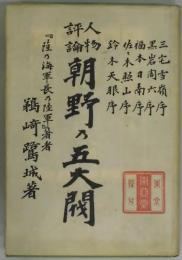 三宅雪嶺序
黒岩周六序
福本日南序
佐々木照山序
鈴木天眼序
人物
評論
朝野の五大閥
『陸の海軍長の陸軍』著者
鵜崎鷺城著
東京
発兌